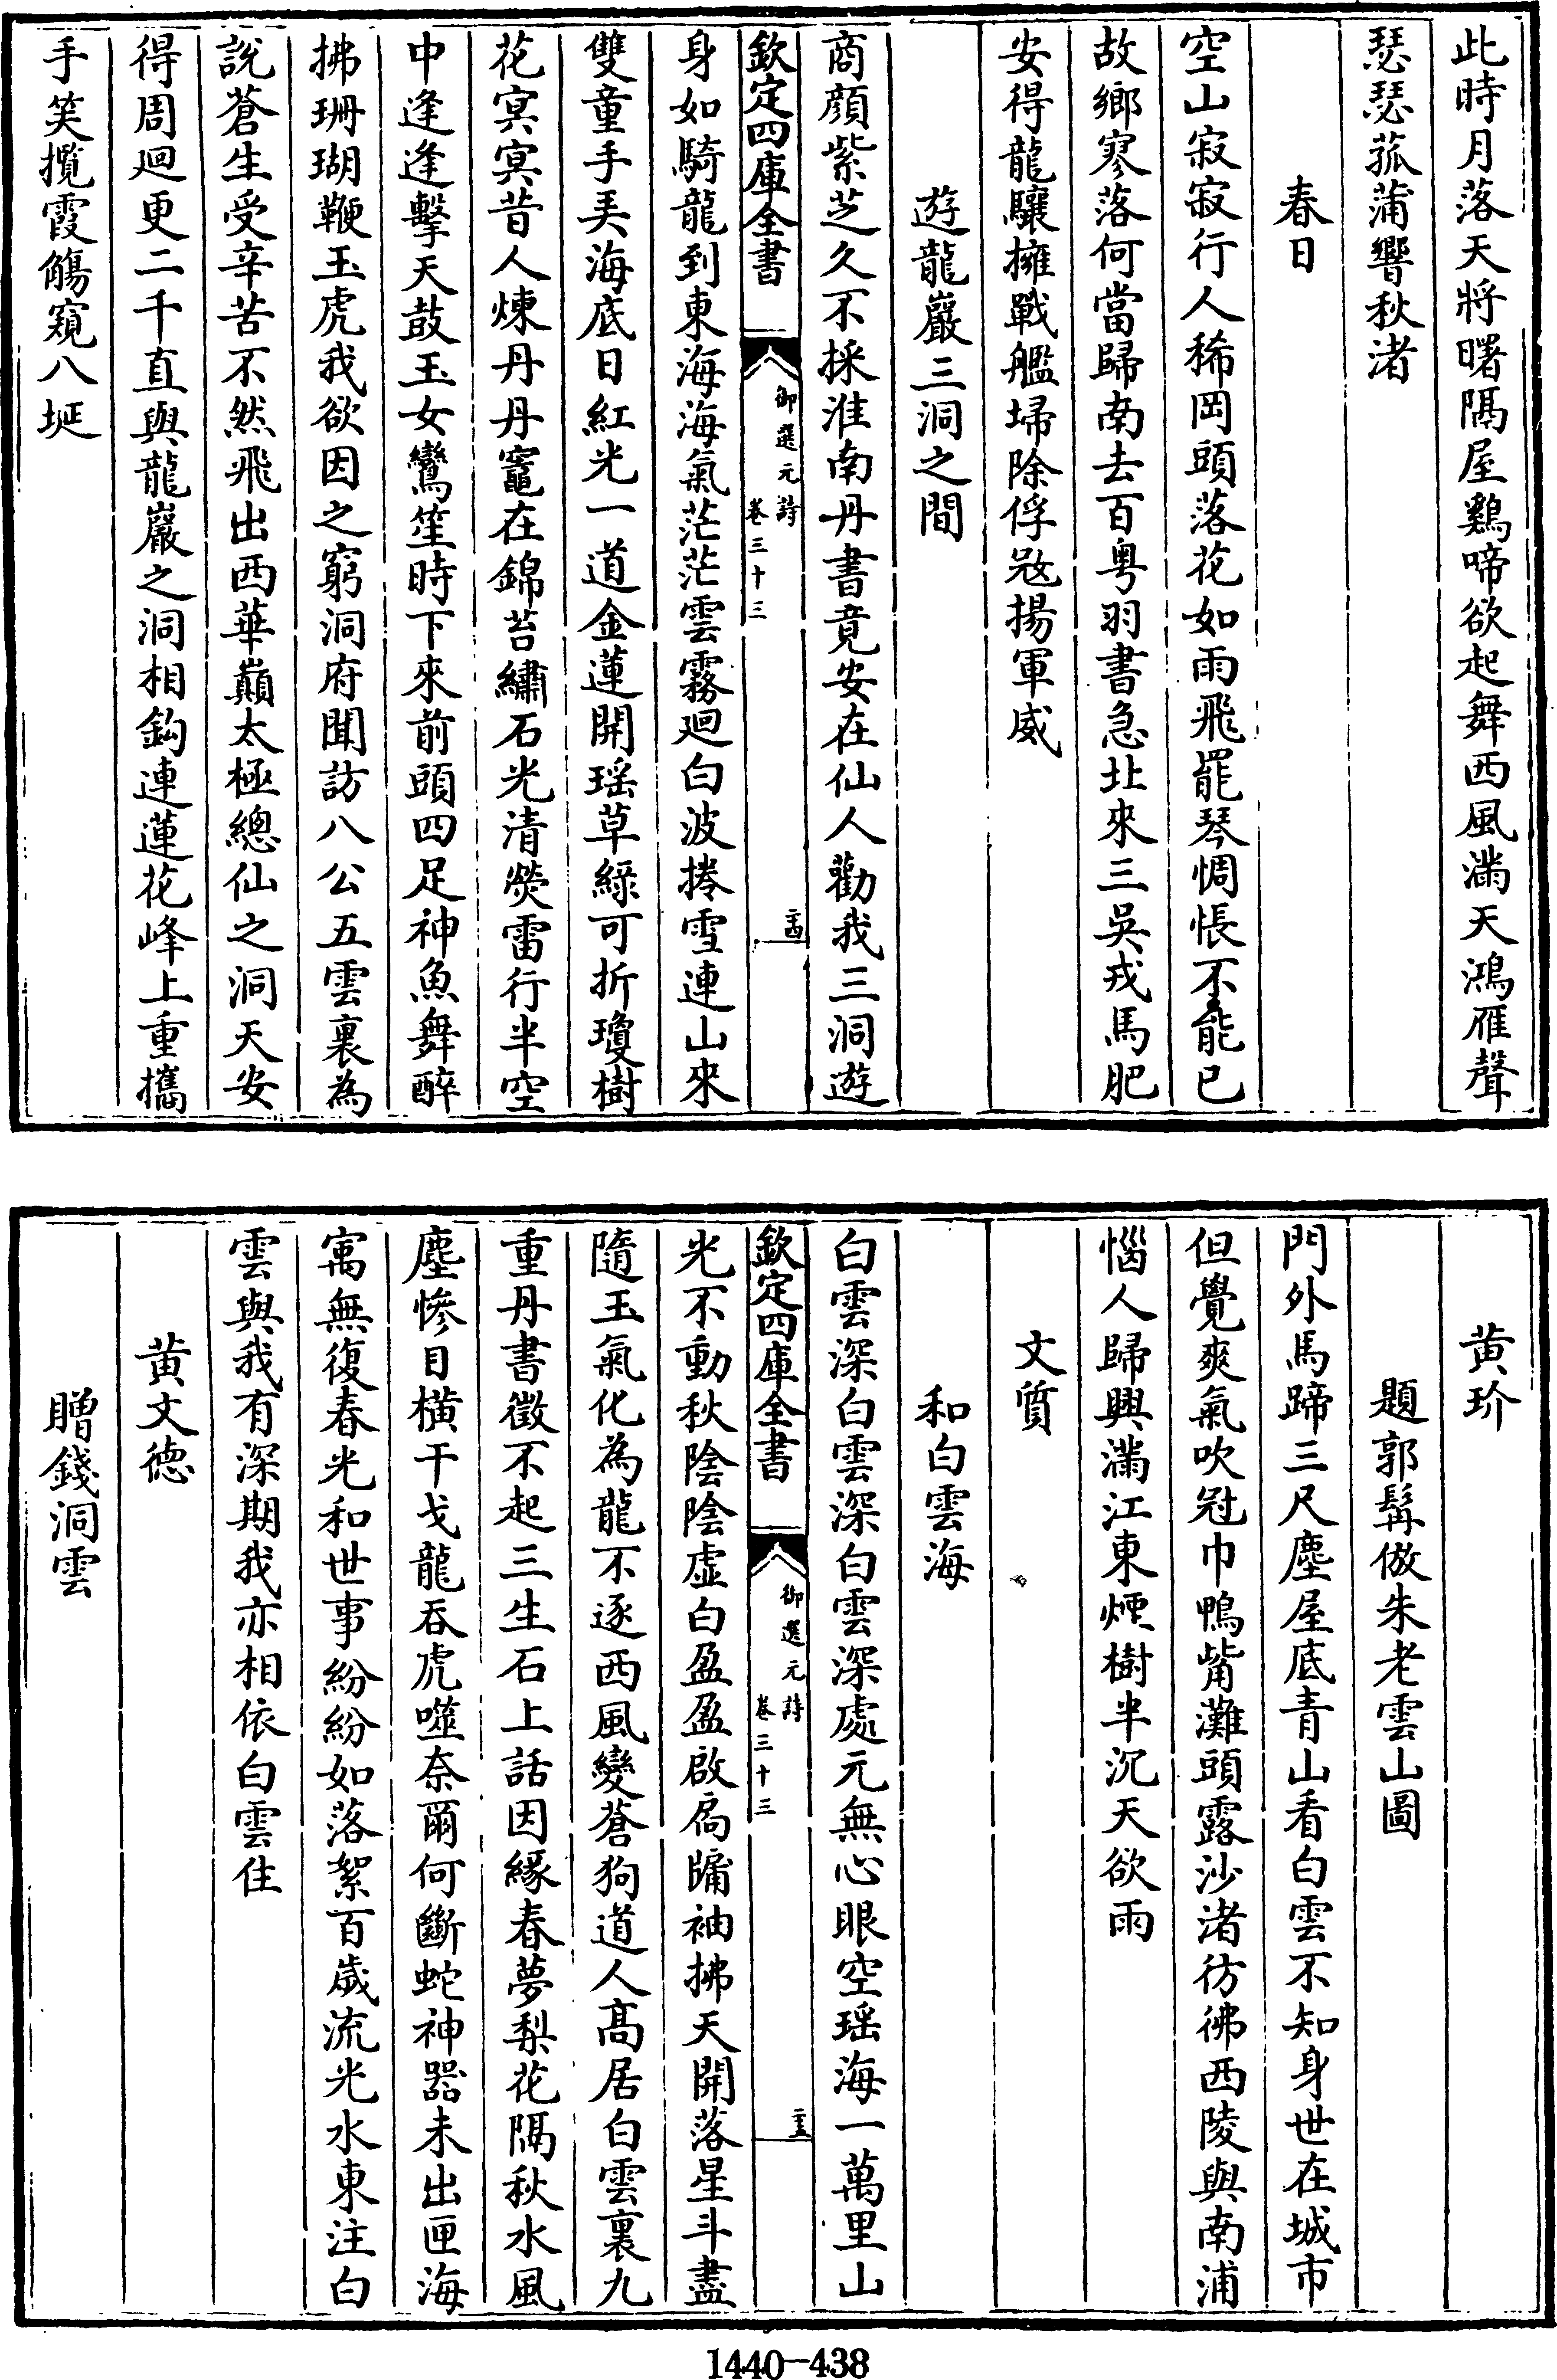 此時月落天將曙隔屋鷄啼欲起舞西風滿天鴻雁聲
瑟瑟菰蒲響秋渚
春日
空山寂寂行人稀岡頭落花如雨飛罷琴惆悵不能已
故鄉寥落何當歸南去百粤羽書急北來三吳戎馬肥
安得龍驤擁戰艦埽除俘㓂揚軍威
遊龍巖三洞之間
商顔紫芝久不採淮南丹書竟安在仙人勸我三洞遊
欽定四庫全書
御選元詩
卷三十三
二十四
身如騎龍到東海海氣茫茫雲霧廻白波捲雪連山來
雙童手弄海底日紅光一道金蓮開瑶草綠可折瓊樹
花冥冥昔人煉丹丹竈在錦苔繡石光清熒雷行半空
中逢逢擊天鼓玉女鸞笙時下來前頭四足神魚舞醉
拂珊瑚鞭玉虎我欲因之窮洞府聞訪八公五雲裏為
説蒼生受辛苦不然飛出西華巔太極總仙之洞天安
得周廻更二千直與龍巖之洞相鈎連蓮花峰上重攜
手笑攬霞觴窺八埏
黄玠
題郭髯倣朱老雲山圖
門外馬蹄三尺塵屋底青山看白雲不知身世在城市
但覺爽氣吹冠巾鴨觜灘頭露沙渚彷彿西陵與南浦
惱人歸興滿江東煙樹半沉天欲雨
文質
和白雲海
白雲深白雲深白雲深處元無心眼空瑶海一萬里山
欽定四庫全書
御選元詩
卷三十三
二十五
光不動秋陰陰虛白盈盈啟扃牖袖拂天開落星斗盡
隨玉氣化為龍不逐西風變蒼狗道人髙居白雲裏九
重丹書徵不起三生石上話因緣春夢梨花隔秋水風
塵慘目横干戈龍吞虎噬奈爾何斷蛇神器未出匣海
寓無復春光和世事紛紛如落絮百歲流光水東注白
雲與我有深期我亦相依白雲住
黄文德
贈錢洞雲
1440-438